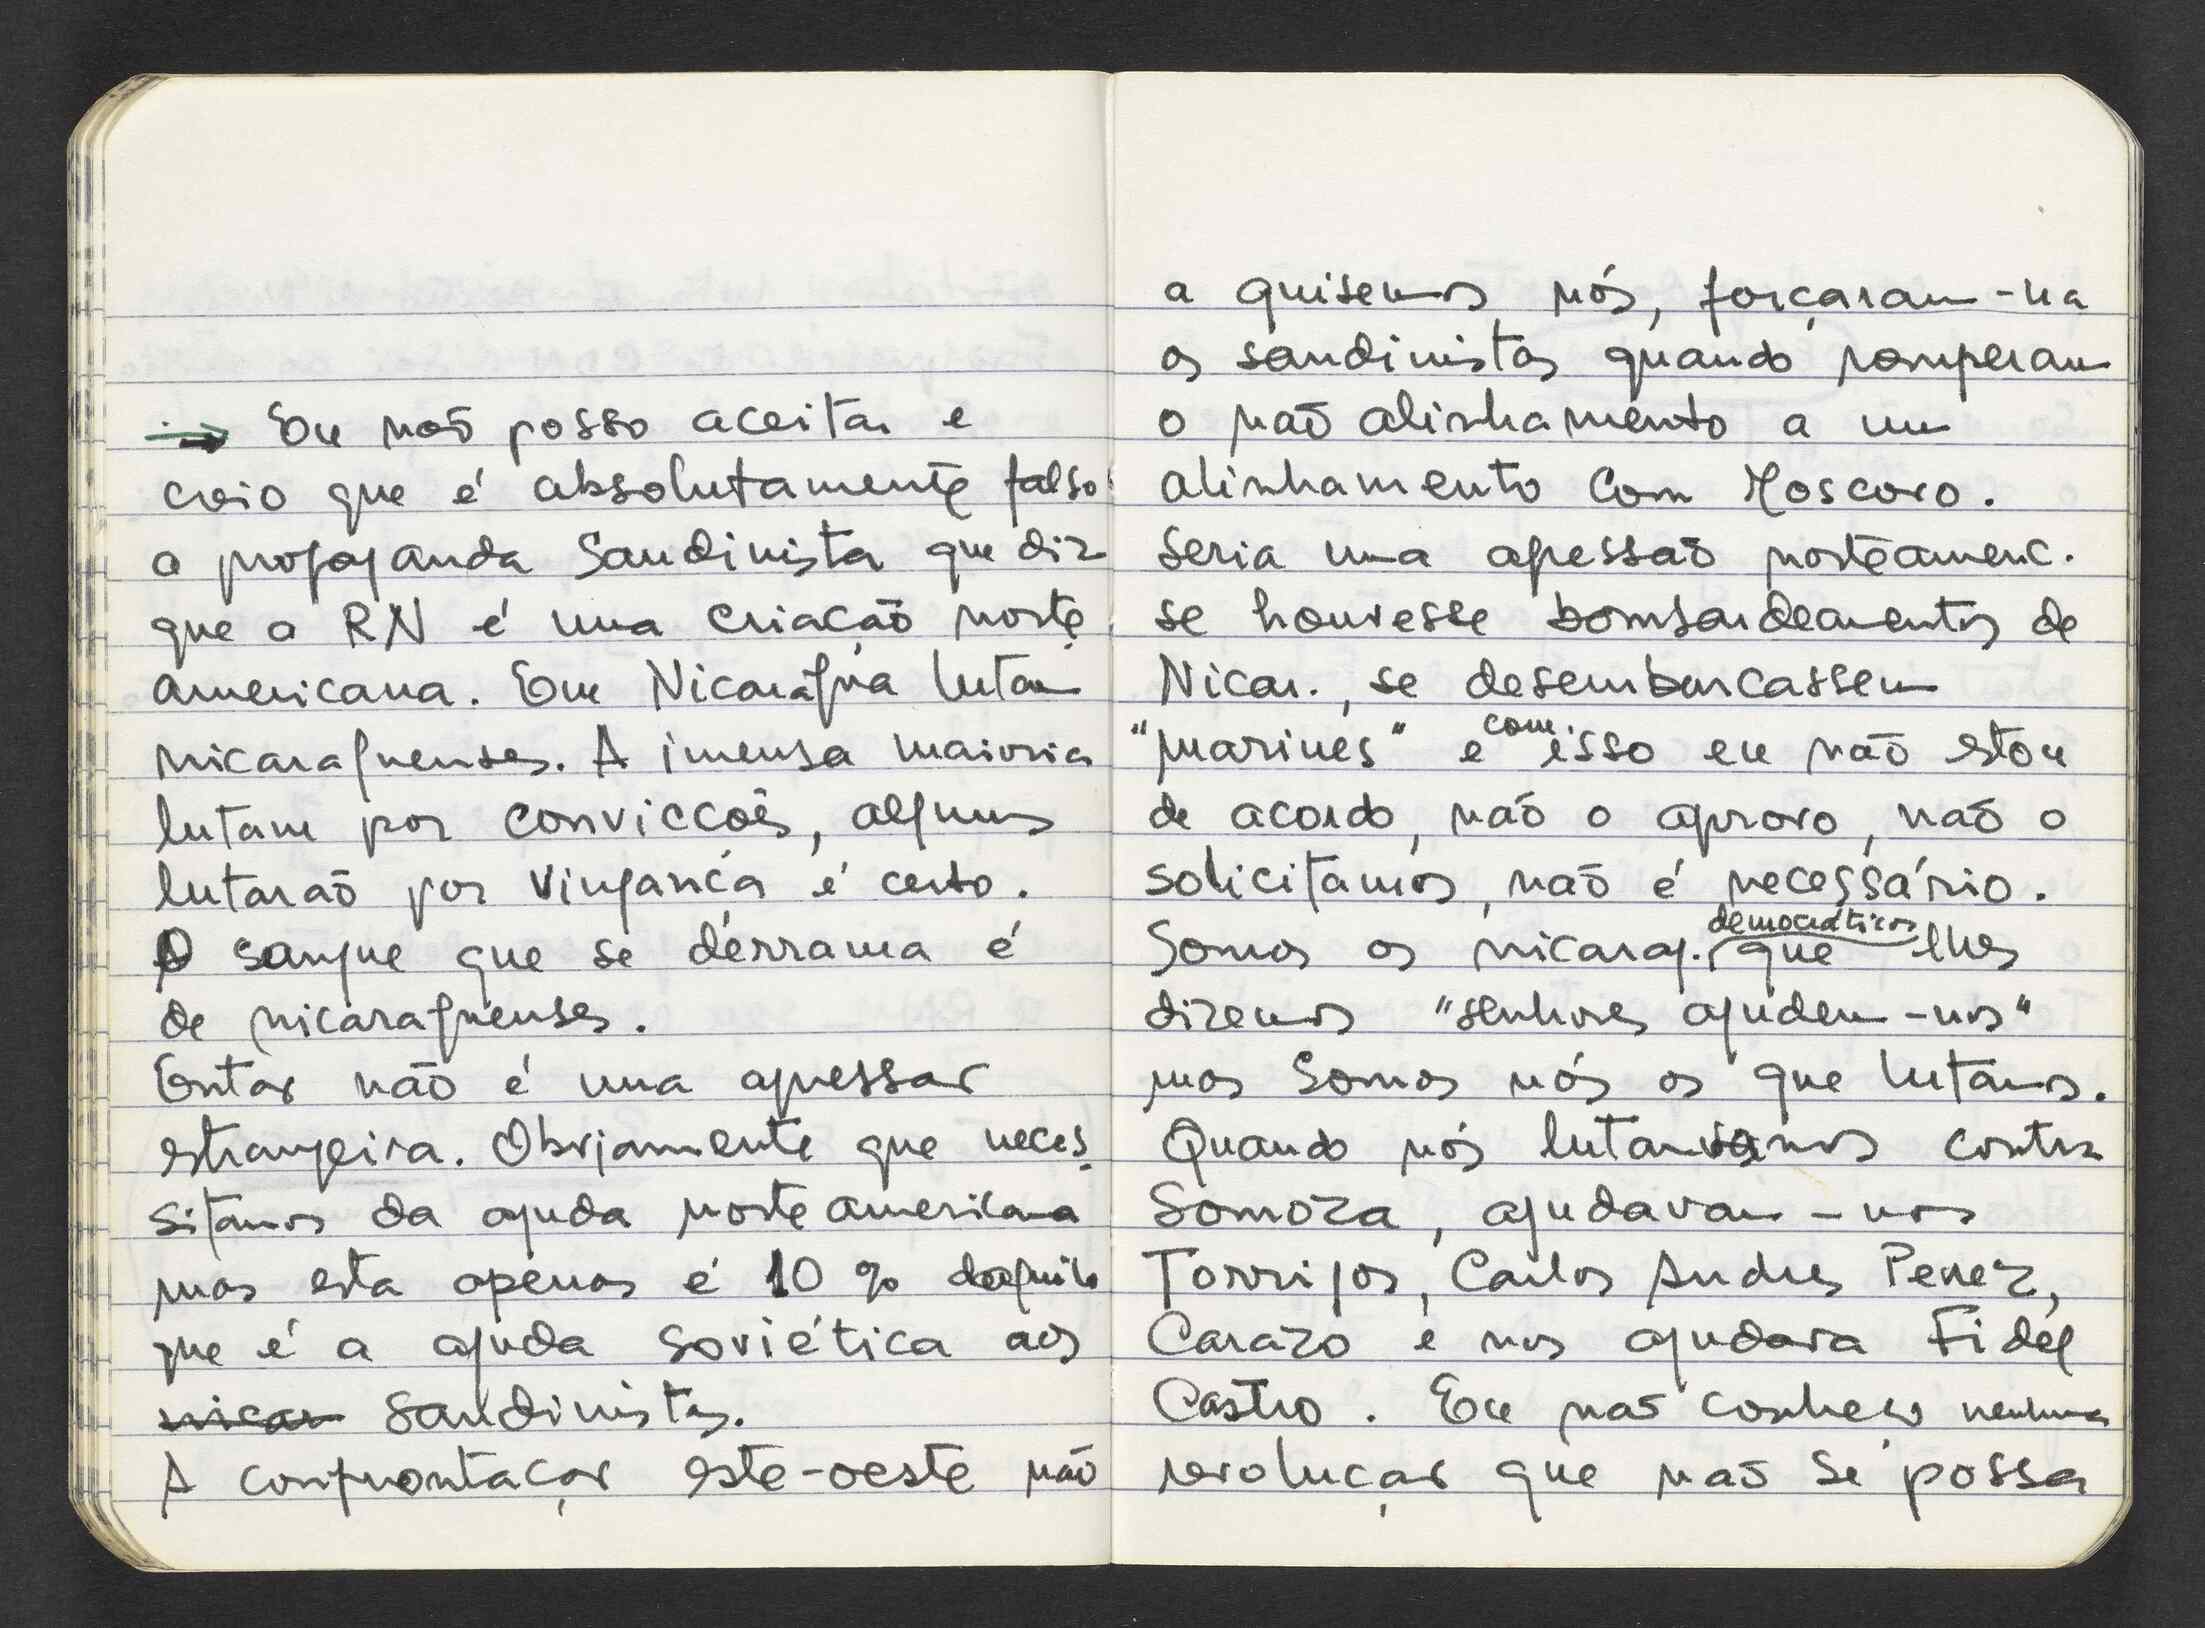 → Eu não posso aceitar e
creio que é absolutamente falso
a propaganda Sandinista que diz
que a RN é uma criação norte
americana. Em Nicarágua lutam
nicaraguenses. A imensa maioria
lutam por convicções, alguns
lutarão por vingança é certo.
O sangue que se derrama é
de nicaraguenses.
Então não é uma agressão
estrangeira. Obviamente que neces
sitamos da ajuda norte americana
mas esta apenas é 10 % daquilo
que é a ajuda soviética aos
nicar sandinistas.
A confrontação este-oeste não
a quisemos nós, forçaram-na
os sandinistas quando romperam
o não alinhamento a um
alinhamento com Moscovo.
Seria uma agressão norteameric.
se houvesse bombardeamentos de
Nicar., se desembarcassem
"marines" e com isso eu não estou
de acordo, não o aprovo, não o
solicitamos, não é necessário.
Somos os nicarag. democráticos que lhes
dizemos "senhores ajudem-nos"
mas somos nós os que lutamos.
Quando nós lutavamos contra
Somoza, ajudavam-nos
Torrijos, Carlos Andres Perez,
Carazo e nos ajudava Fidel
Castro. Eu não conheço nenhuma
revolução que não se possa